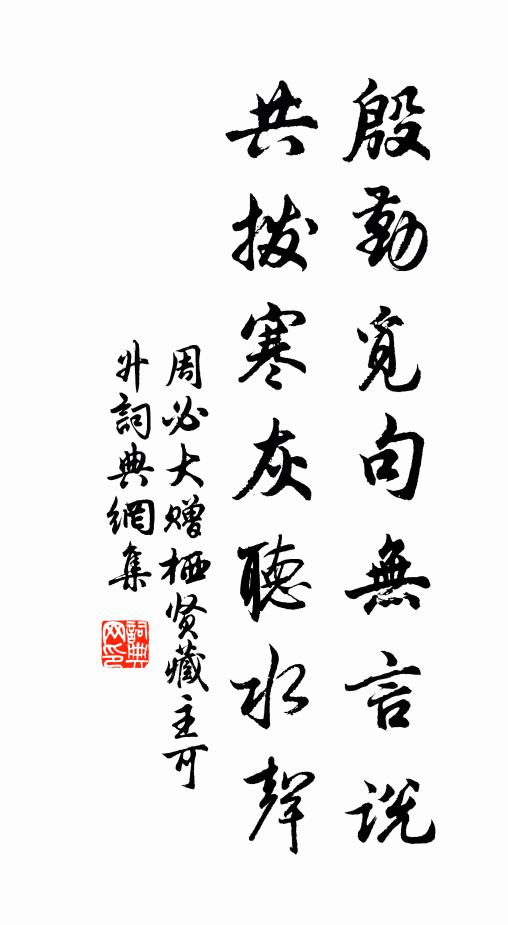 殷勤覓句無言説
共撥寒灰聽水聲
周必大贈栖贤藏主可
升詞典網集
詞典网印